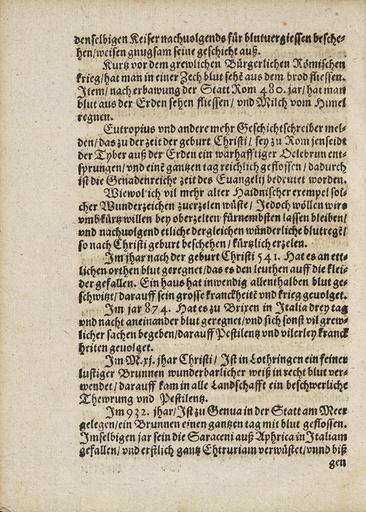 denselbigen Keiser nachuolgends für blutuergiessen besche-
hen/weisen gnugsam seine geschicht auß.
Kurtz vor dem grewlichen Bürgerlichen Römischen
krieg/hat man in einer Zech blut sehẽ aus dem brod fliessen.
Item/nach erbawung der Statt Rom 480. jar/hat man
blut aus der Erden sehen fliessen/vnd Milch vom Himel
regnen.
Eutropius vnd andere mehr Geschichtschreiber mel-
den/das zu der zeit der geburt Christi/sey zu Rom jenseidt
der Tyber auß der Erden ein warhafftiger Oelebrun ent-
sprungen/vnd einẽ gantzen tag reichlich geflossen/dadurch
ist die Genadenreiche zeit des Euangelij bedeutet worden.
Wiewol ich vil mehr alter Haidnischer exempel sol-
cher Wunderzeichen zuerzelen wüste/Jedoch wöllen wirs
vmb kürtz willen bey oberzelten fürnembsten lassen bleiben/
vnd nachuolgend etliche dergleichen wünderliche blutregẽ/
so nach Christi geburt beschehen/kürtzlich erzelen.
Im jhar nach der geburt Christi 541. Hat es an ett-
lichen orthen blut geregnet/das es den leuthen auff die klei-
der gefallen. Ein haus hat inwendig allenthalben blut ge-
schwitzt/darauff sein grosse kranckheitẽ vnd krieg geuolget.
Im jar 874. Hat es zu Brixen in Italia drey tag
vnd nacht an einander blut geregnet/vnd sich sonst vil grew-
licher sachen begeben/darauff Pestilentz vnd vilerley kranck
heiten geuolget.
Im M.xj. jhar Christi/Ist in Lothringen ein feiner
lustiger Brunnen wunderbarlicher weiß in recht blut ver-
wendet/darauff kam in alle Landschafft ein beschwerliche
Thewrung vnd Pestilentz.
Im 932. jhar/Ist zu Genua in der Statt am Meer
gelegen/ein Brunnen einen gantzen tag mit blut geflossen.
Im selbigen jar sein die Saraceni auß Aphrica in Italiam
gefallen/vnd erstlich gantz Ehtruriam verwüstet/vnnd biß
gen